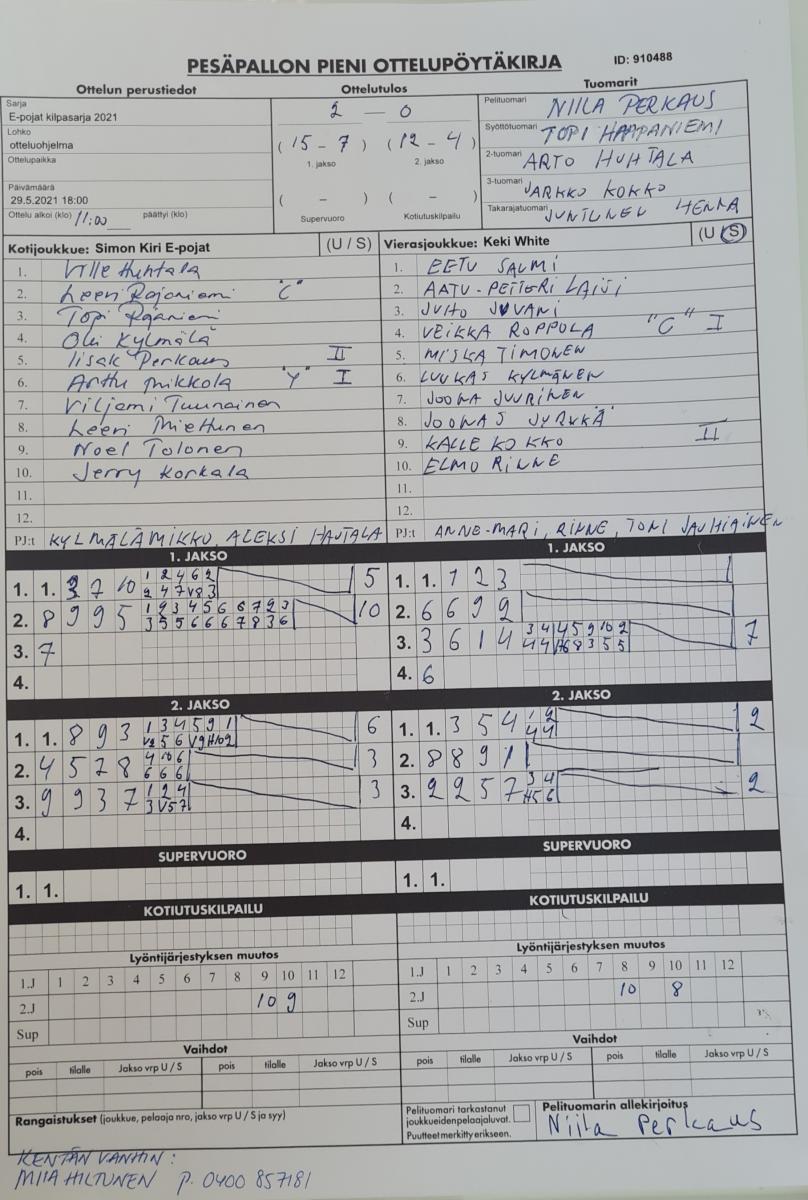 PESÄPALLON PIENI OTTELUPÖYTÄKIRJA
ID: 910488
Ottelun perustiedot
Ottelutulos
Tuomarit
Sarja
E-pojat kilpasarja 2021
Lohko
otteluohjelma
Ottelupaikka
Päivämäärä
29.5.2021 18:00
Ottelu alkoi (klo) 11:00 päättyi (klo)
2 — 0
(15 - 7) (12 - 4)
1. jakso 2. jakso
( - ) ( - )
Supervuoro Kotiutuskilpailu
Pelituomari NIILA PERKAUS
Syöttötuomari TOPI HAAPANIEMI
2-tuomari ARTO HUHTALA
3-tuomari JARKKO KOKKO
Takarajatuomari JUNTUNEN HENNA
Kotijoukkue: Simon Kiri E-pojat (U / S)
1. Ville Huhtala
2. Leevi Rajaniemi "C"
3. Topi Rajaniemi
4. Oli Kylmälä
5. Iisak Perkaus II
6. Arttu Mikkola "Y" I
7. Viljami Tuunainen
8. Leevi Miettunen
9. Noel Tolonen
10. Jerry Korkala
11.
12.
PJ:t KYLMÄLÄ MIKKO, ALEKSI HAUTALA
Vierasjoukkue: Keki White (U / S)
1. EETU SALMI
2. AATU-PETTERI LAIJI
3. JUHO JUVANI
4. VEIKKA ROPPOLA "C" I
5. MISKA TIMONEN
6. LUUKAS KYLMÄNEN
7. JOONA JUURINEN
8. JOONAS JYRKKÄ
9. KALLE KOKKO II
10. ELMO RINNE
11.
12.
PJ:t ANNE-MARI, RINNE, TONI JAUHIAINEN
1. JAKSO
1. 1. 3 7 10 1 2 4 6 2 5
2 4 7 V8 3
2. 8 9 9 5 1 9 3 4 5 6 6 7 2 3 10
3 5 5 6 6 6 7 8 3 6
3. 7
4.
1. JAKSO
1. 1. 1 2 3
2. 6 6 9 2
3. 3 6 1 4 3 4 1 4 5 9 10 2 7
4.  6
2. JAKSO
1. 1. 8 9 3 1 3 4 5 9 1 6
2. 4 5 7 8 4 10 6 3
6 6 6
3. 9 9 3 7 1 2 4 3
3 V5 7
4.
2. JAKSO
1. 1. 3 5 4 1 2 2
4 4
2. 8 8 9 1
3. 2 2 5 7 3 4 2
H5 6
4.
SUPERVUORO
1. 1.
SUPERVUORO
1. 1.
KOTIUTUSKILPAILU
KOTIUTUSKILPAILU
Lyöntijärjestyksen muutos
1.J 1 2 3 4 5 6 7 8 9 10 11 12
2.J 10 9
Sup
Lyöntijärjestyksen muutos
1.J 1 2 3 4 5 6 7 8 9 10 11 12
2.J 10 8
Sup
Vaihdot
pois tilalle Jakso vrp U / S pois tilalle Jakso vrp U / S
Vaihdot
pois tilalle Jakso vrp U / S pois tilalle Jakso vrp U / S
Rangaistukset (joukkue, pelaaja nro, jakso vrp U / S ja syy)
Pelituomari tarkastanut
joukkueidenpelaajaluvat.
Puutteet merkitty erikseen.
Pelituomarin allekirjoitus
Niila Perkaus
KENTÄN VANHIN:
MIIA HILTUNEN p. 0400 857181